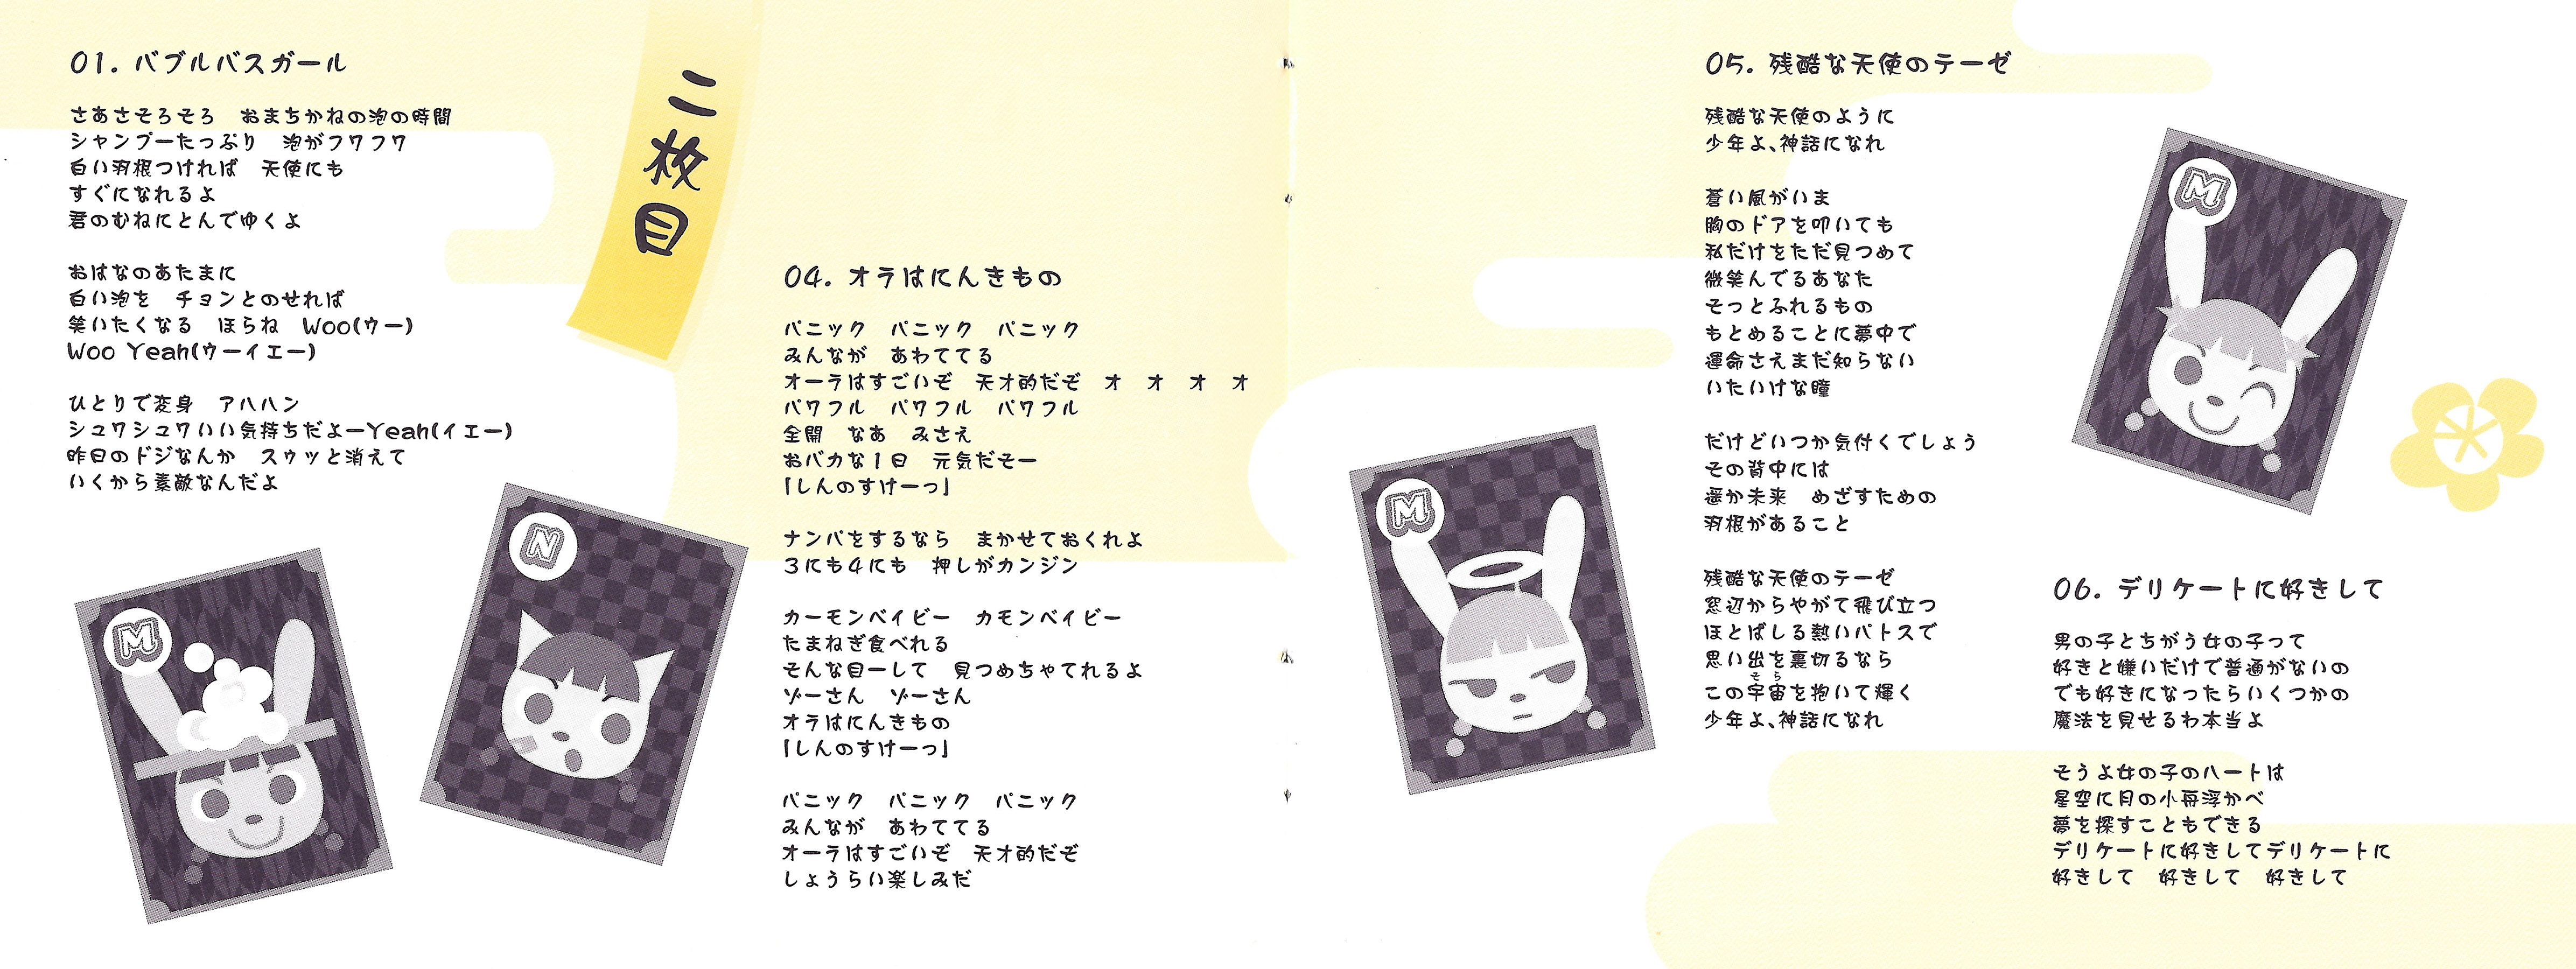 01. バブルバスガール
さあさそろそろ　おまちかねの泡の時間
シャンプーたっぷり　泡がフワフワ
白い羽根つければ　天使にも
すぐになれるよ
君のむねにとんでゆくよ
おはなのあたまに
白い泡を　チョンとのせれば
笑いたくなる　ほらね　Woo(ウー)
Woo Yeah(ウーイエー)
ひとりで変身　アハハン
シュワシュワいい気持ちだよーYeah(イエー)
昨日のドジなんか　スゥッと消えて
いくから素敵なんだよ
M
N
二枚目
04. オラはにんきもの
パニック　パニック　パニック
みんなが　あわててる
オーラはすごいぞ　天才的だぞ　オ　オ　オ　オ
パワフル　パワフル　パワフル
全開　なあ　みさえ
おバカな1日　元気だそー
「しんのすけーっ」
ナンパをするなら　まかせておくれよ
3にも4にも　押しがカンジン
カーモンベイビー　カモンベイビー
たまねぎ食べれる
そんな目ーして　見つめちゃてれるよ
ゾーさん　ゾーさん
オラはにんきもの
「しんのすけーっ」
パニック　パニック　パニック
みんなが　あわててる
オーラはすごいぞ　天才的だぞ
しょうらい楽しみだ
M
05. 残酷な天使のテーゼ
残酷な天使のように
少年よ、神話になれ
蒼い風がいま
胸のドアを叩いても
私だけをただ見つめて
微笑んでるあなた
そっとふれるもの
もとめることに夢中で
運命さえまだ知らない
いたいけな瞳
だけどいつか気付くでしょう
その背中には
遥か未来　めざすための
羽根があること
残酷な天使のテーゼ
窓辺からやがて飛び立つ
ほとばしる熱いパトスで
思い出を裏切るなら
そら
この宇宙を抱いて輝く
少年よ、神話になれ
M
06. デリケートに好きして
男の子とちがう女の子って
好きと嫌いだけで普通がないの
でも好きになったらいくつかの
魔法を見せるわ本当よ
そうよ女の子のハートは
星空に月の小舟浮かべ
夢を探すこともできる
デリケートに好きしてデリケートに
好きして　好きして　好きして